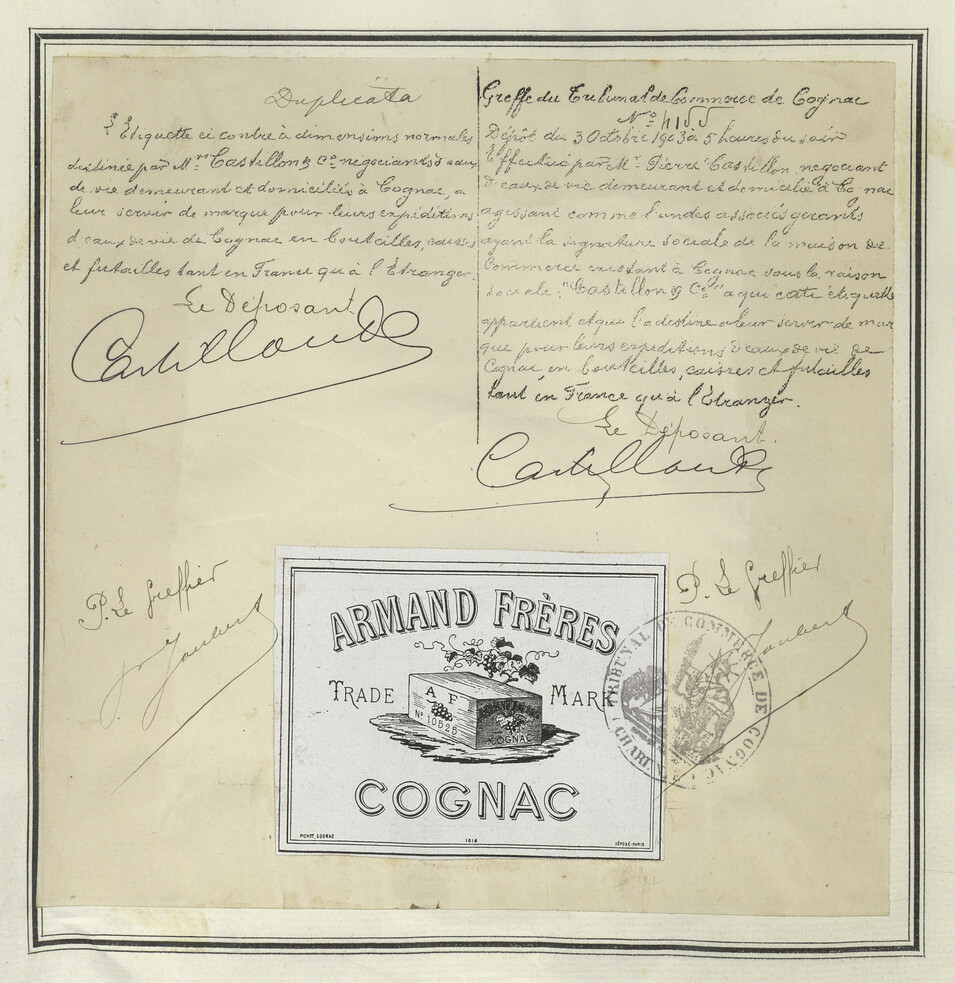 Duplicata
L'Etiquette ci contre à dimensions normales
destinée par M.rs Castillon & Co négociants d'eaux
de vie demeurant et domiciliés à Cognac, a
leur servir de marque pour leurs expéditions
d'eaux de vie de Cognac en bouteilles, caisses
et futailles tant en France qu'à l'Etranger.
Le Déposant
Greffe du Tribunal de Commerce de Cognac
No 4155
Dépôt du 3 Octobre 1903 à 5 heures du soir
Effectué par M.r Pierre Castillon, negociant
d'eaux de vie demeurant et domicilié à Cognac
agissant comme l'un des associés gérants
ayant la signature sociale de la maison de
Commerce existant à Cognac sous la raison
sociale: "Castillon & Co" a qui cette étiquette
appartient et qui l'a destine a leur servir de mar
que pour leurs expéditions d'eaux de vie de
Cognac, en bouteilles, caisses et futailles
tant en France qu'à l'Etranger.
Le Déposant.
P. Le Greffier
Joubert
P. Le Greffier
Joubert
ARMAND FRÈRES
TRADE MARK
A F
No 10525
COGNAC
COGNAC
PICHOT, COGNAC
1016
DÉPOSÉ-PARIS
TRIBUNAL DE COMMERCE DE COGNAC